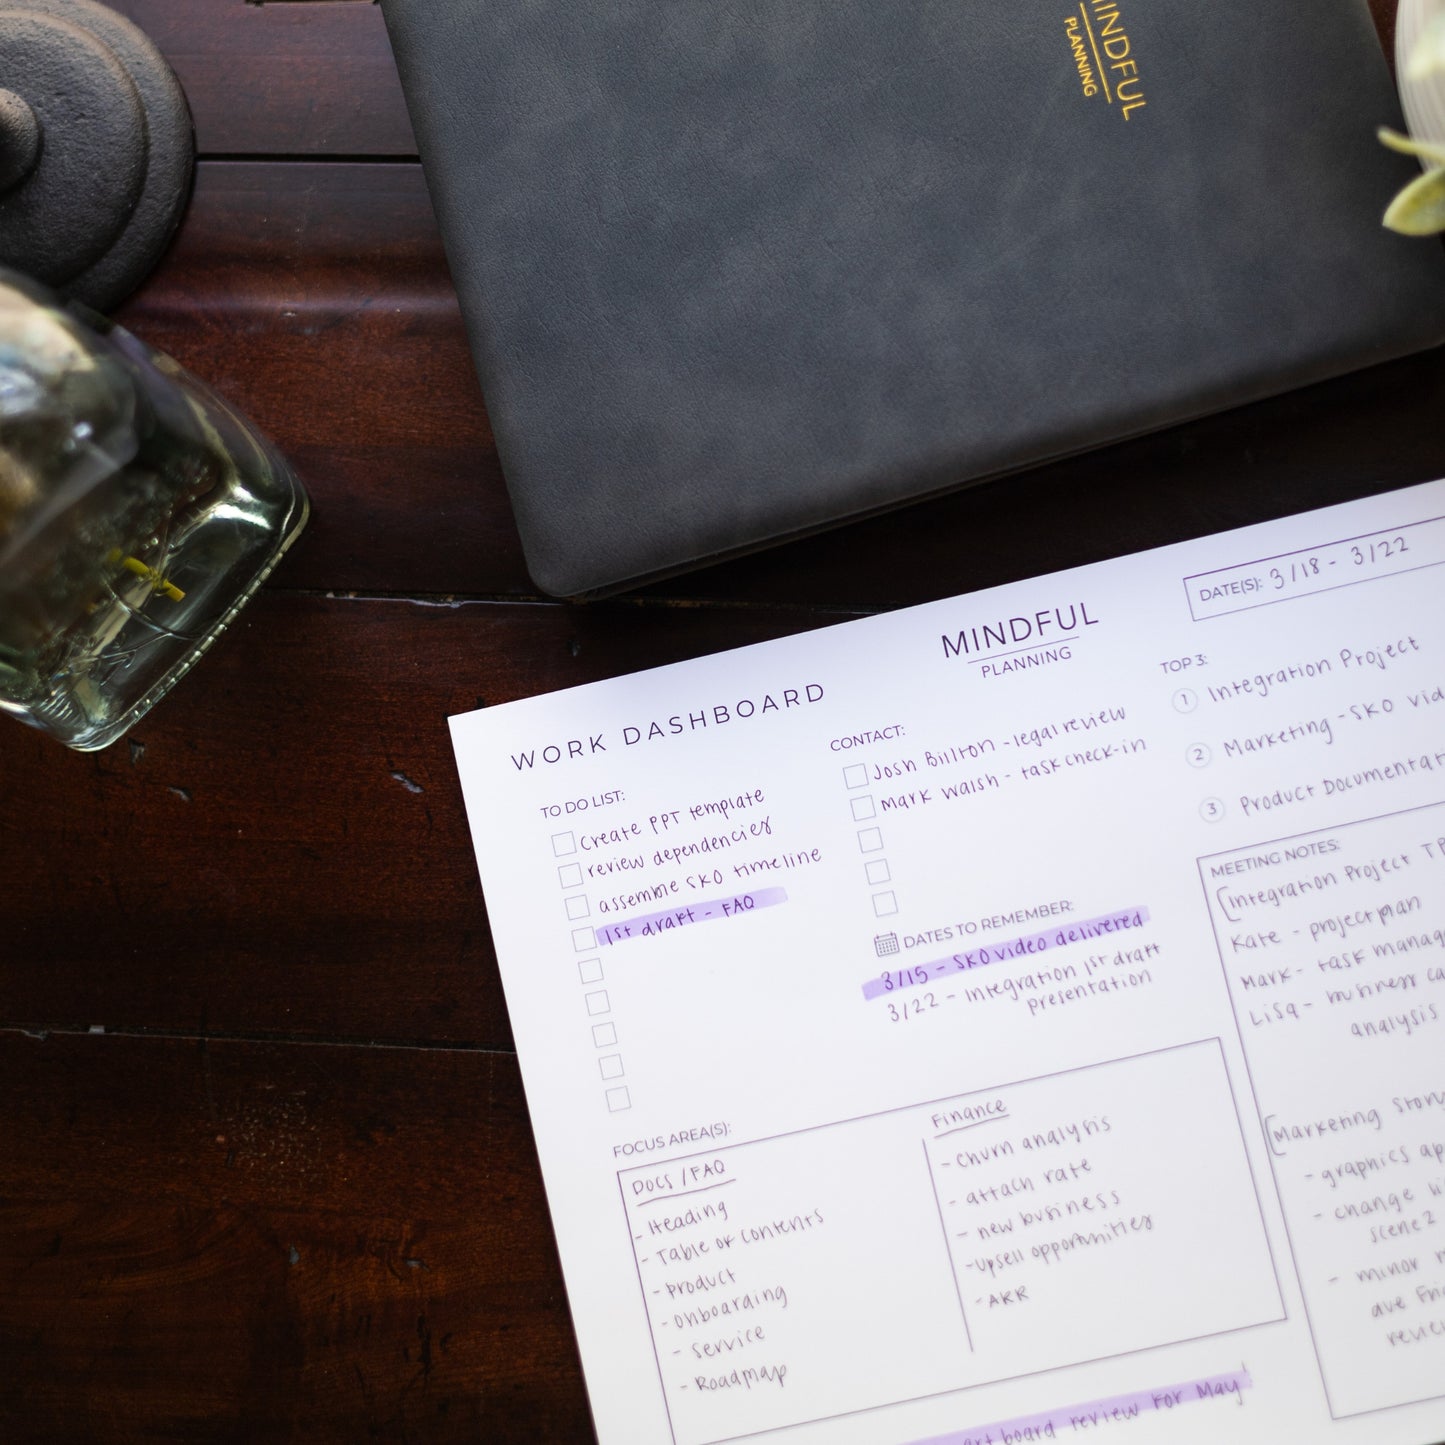 MINDFUL
PLANNING
MINDFUL
PLANNING
DATE(S): 3/18 - 3/22
WORK DASHBOARD
TO DO LIST:
Create PPT template
review dependencies
assemble SKO timeline
1st draft - FAQ
CONTACT:
Josh Billton - legal review
Mark Walsh - task check-in
DATES TO REMEMBER:
3/15 - SKO video delivered
3/22 - Integration 1st draft
presentation
TOP 3:
1 Integration Project
2 Marketing - SKO
3 Product
MEETING NOTES:
Integration Project
Kate - project plan
Mark - task
Lisa - business
analysis
Marketing
- graphics
- change
scene 2
- minor
ave
FOCUS AREA(S):
DOCS / FAQ
- Heading
- Table of Contents
- product
- onboarding
- service
- Roadmap
Finance
- churn analysis
- attach rate
- new business
- Upsell opportunities
- ARR
board review for May